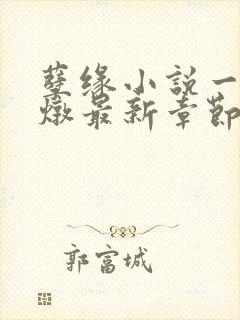 孽缘小説一
燉最新章節
郭富城